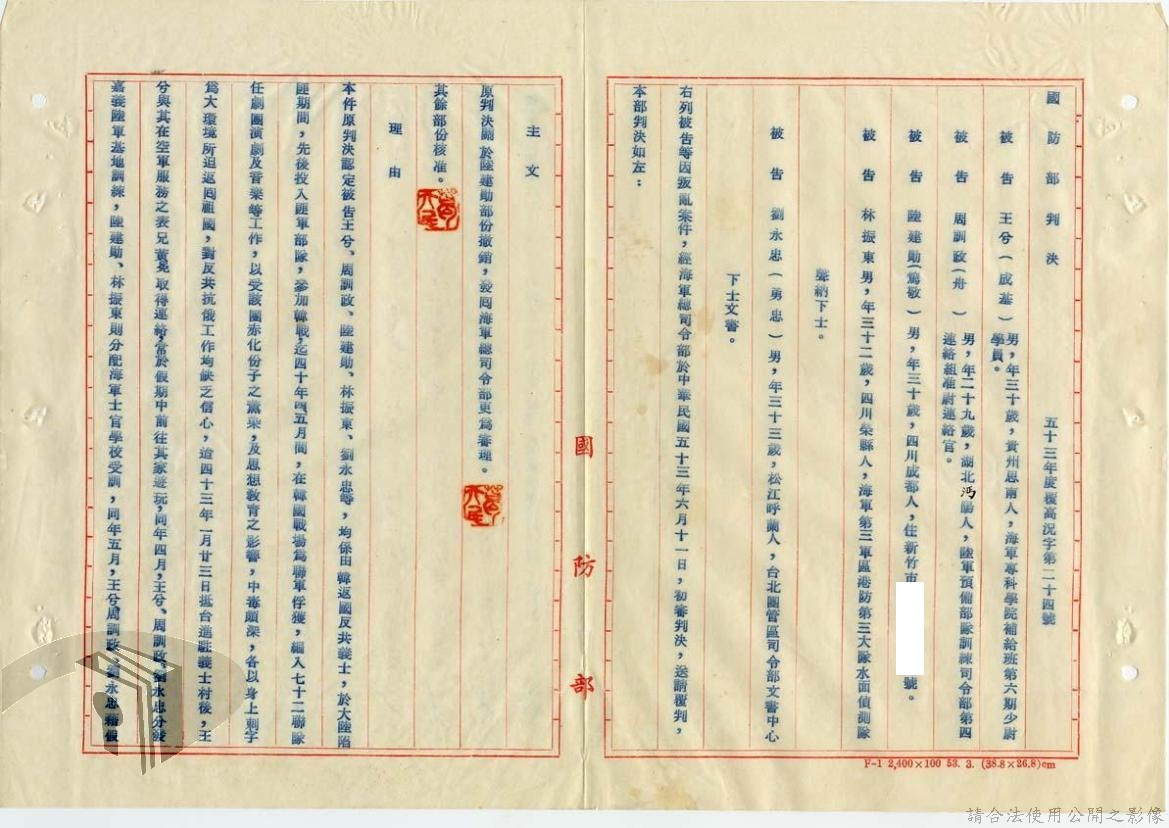 國防部判決
五十三年度覆高況字第二十四號
被告 王兮(成基)男,年三十歲,貴州思南人,海軍專科學院補給班第六期少尉
學員。
被告 周訓政(舟)男,年二十九歲,湖北沔陽人,陸軍預備部隊訓練司令部第四
連絡組准尉連絡官。
被告 陸建勛(篤敬)男,年三十歲,四川成都人,住新竹市
號。
被告 林振東男,年三十二歲,四川榮縣人,海軍第三軍區港防第三大隊水面偵測隊
聲納下士。
被告 劉永忠(勇忠)男,年三十三歲,松江呼蘭人,台北團管區司令部文書中心
下士文書。
右列被告等因叛亂案件,經海軍總司令部於中華民國五十三年六月十一日,初審判決,送請覆判,
本部判決如左:
主文
原判決關於陸建勛部份撤銷,發囘海軍總司令部更為審理。
其餘部份核准。
理由
本件原判決認定被告王兮、周訓政、陸建勛、林振東、劉永忠等,均係由韓返國反共義士,於大陸陷
匪期間,先後投入匪軍部隊,參加韓戰,迄四十年四五月間,在韓國戰場為聯軍俘獲,編入七十二聯隊
任劇團演劇及音樂等工作,以受該團赤化份子之薰染,及思想教育之影響,中毒頗深,各以身上刺字
為大環境所迫返囘祖國,對反共抗俄工作均缺乏信心,迨四十三年一月廿三日抵台進駐義士村後,王
兮與其在空軍服務之表兄黃堯取得連絡,常於假期中前往其家遊玩,同年四月,王兮、周訓政、劉永忠分發
嘉義陸軍基地訓練,陸建勛、林振東則分配海軍士官學校受訓,同年五月,王兮周訓政、劉永忠藉假
國防部
F-1 2,400×100 53. 3. (38.8×26.8)cm
請合法使用公開之影像